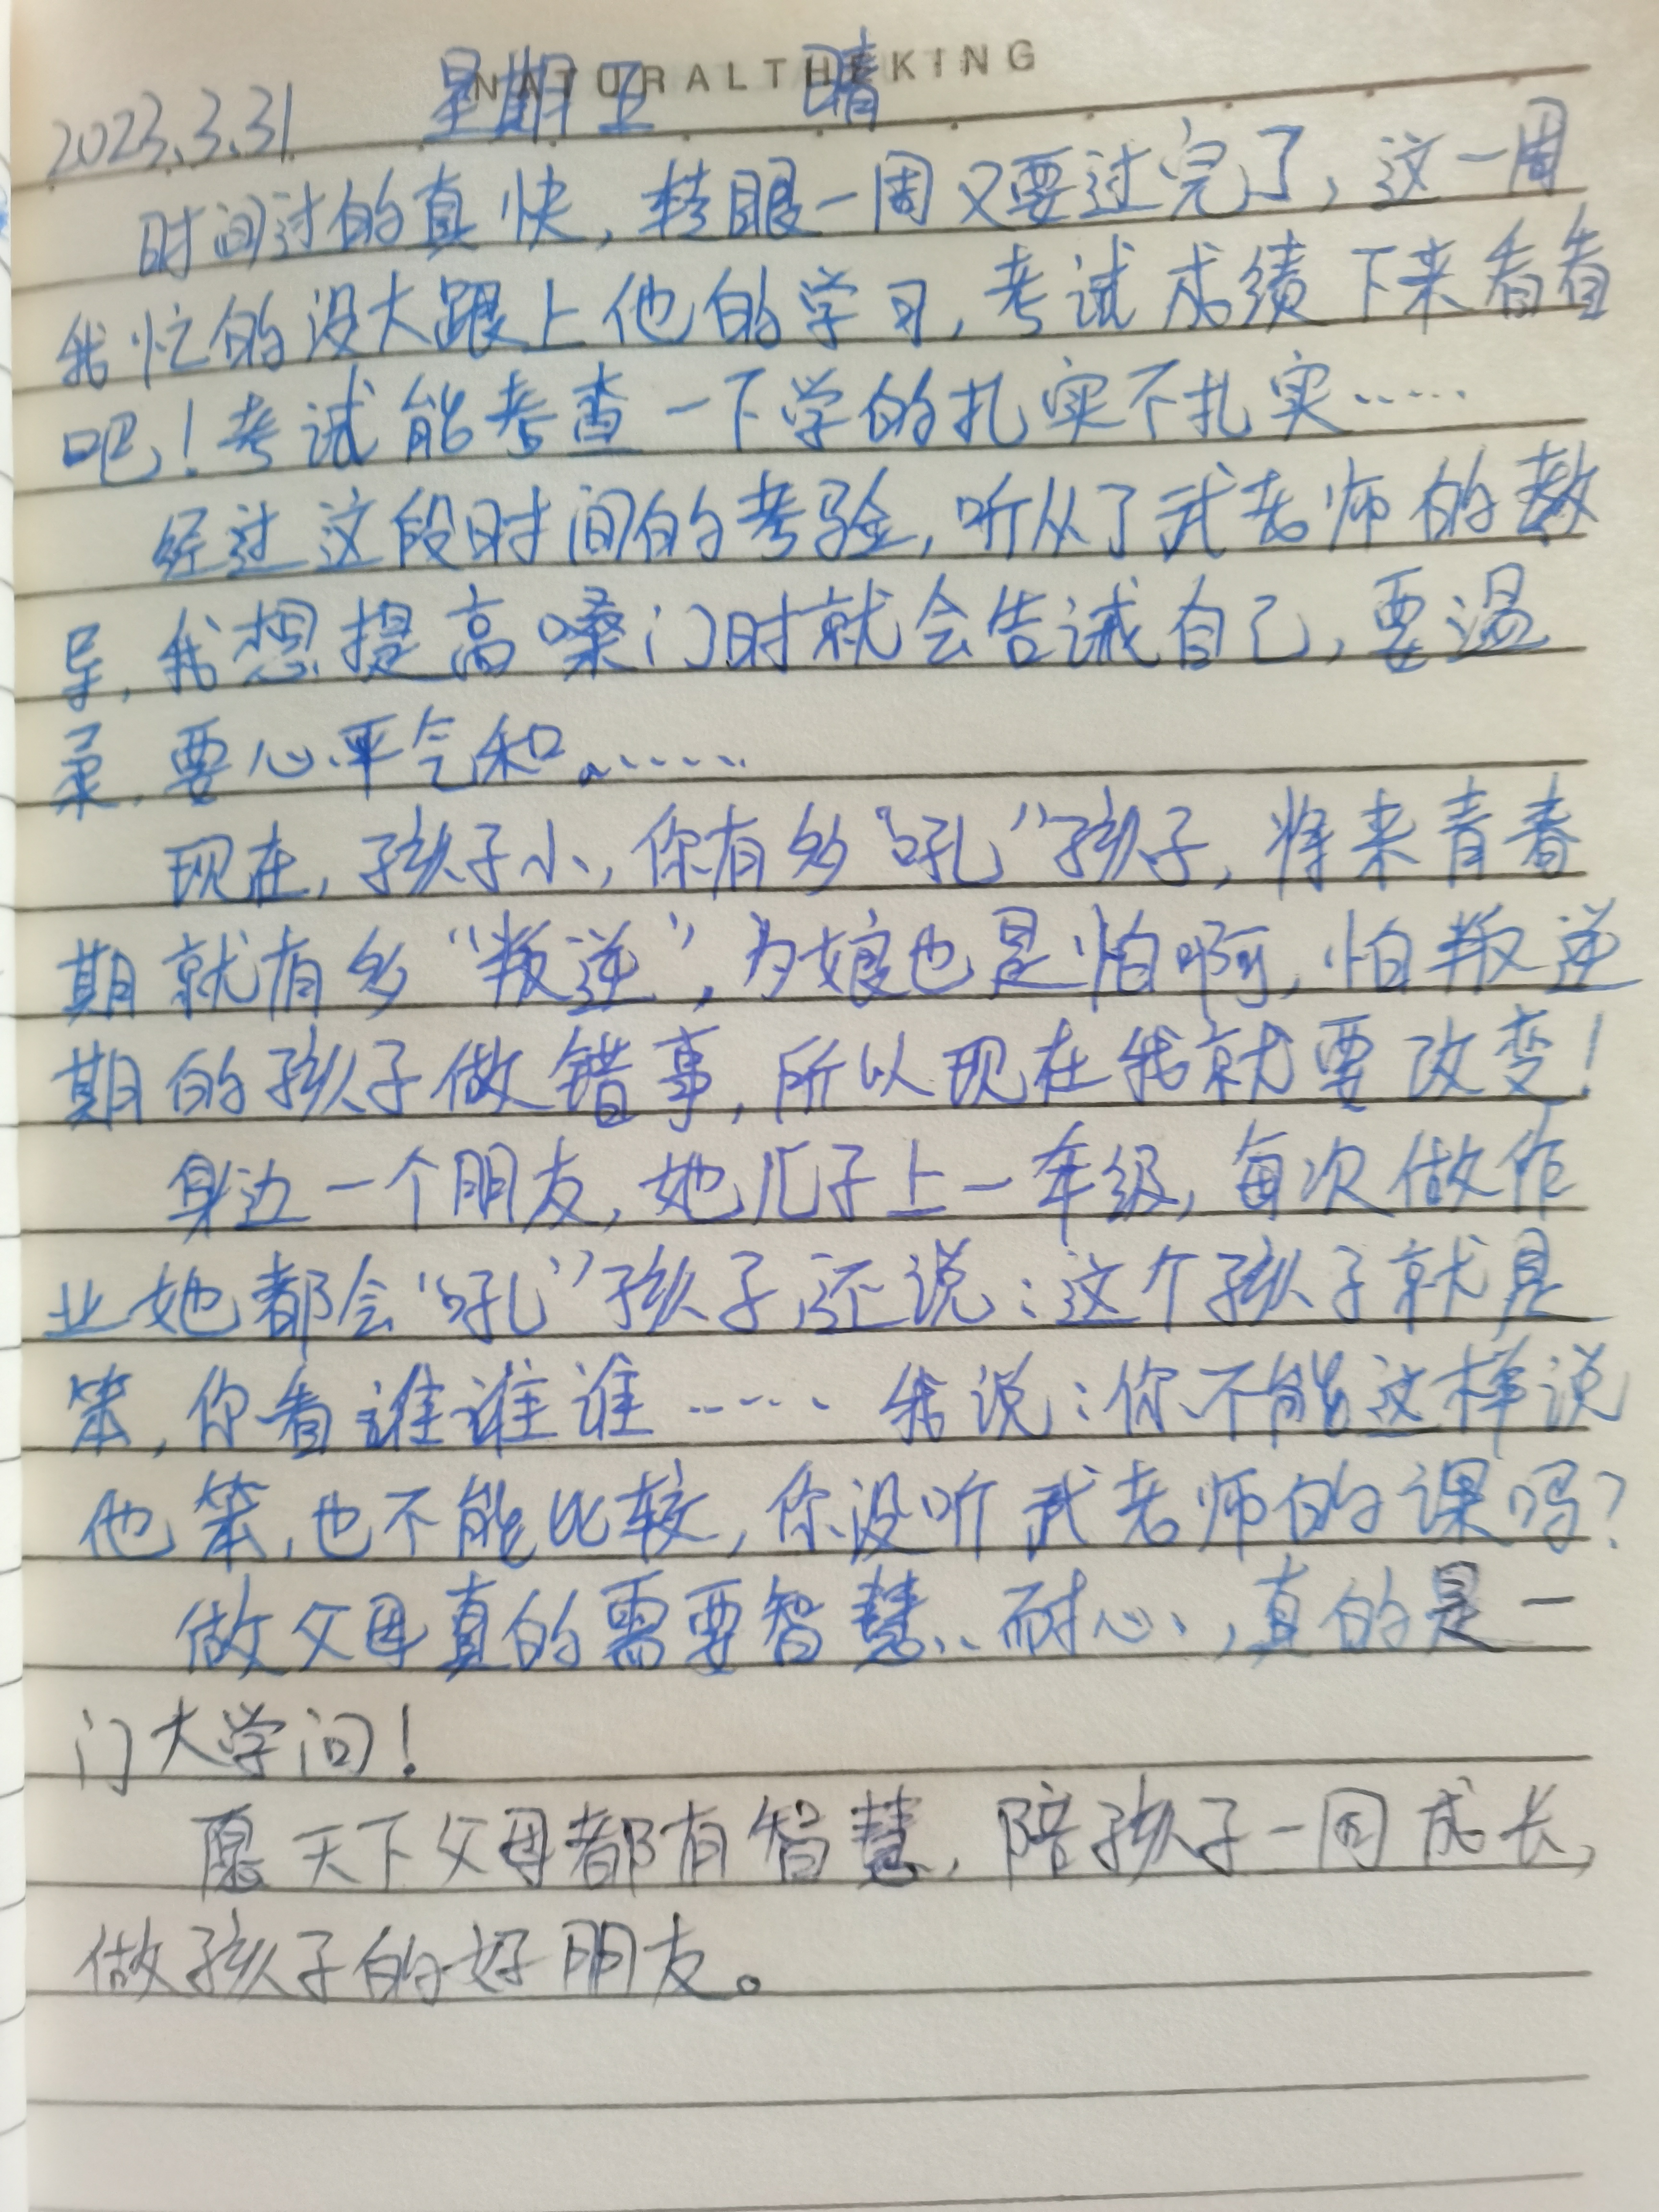 NATURALTHEKING
2023.3.31 星期五 晴
时间过的真快,转眼一周又要过完了,这一周
我忙的没大跟上他的学习,考试成绩下来看看
吧!考试能考查一下学的扎实不扎实……
经过这段时间的考验,听从了武老师的教
导,我想提高嗓门时就会告诫自己,要温
柔,要心平气和。……
现在,孩子小,你有多“吼”孩子,将来青春
期就有多“叛逆”,为娘也是怕啊,怕叛逆
期的孩子做错事,所以现在我就要改变!
身边一个朋友,她儿子上一年级,每次做作
业她都会“吼”孩子,还说:这个孩子就是
笨,你看谁谁谁……我说:你不能这样说
他笨,也不能比较,你没听武老师的课吗?
做父母真的需要智慧、耐心,真的是一
门大学问!
愿天下父母都有智慧,陪孩子一同成长,
做孩子的好朋友。